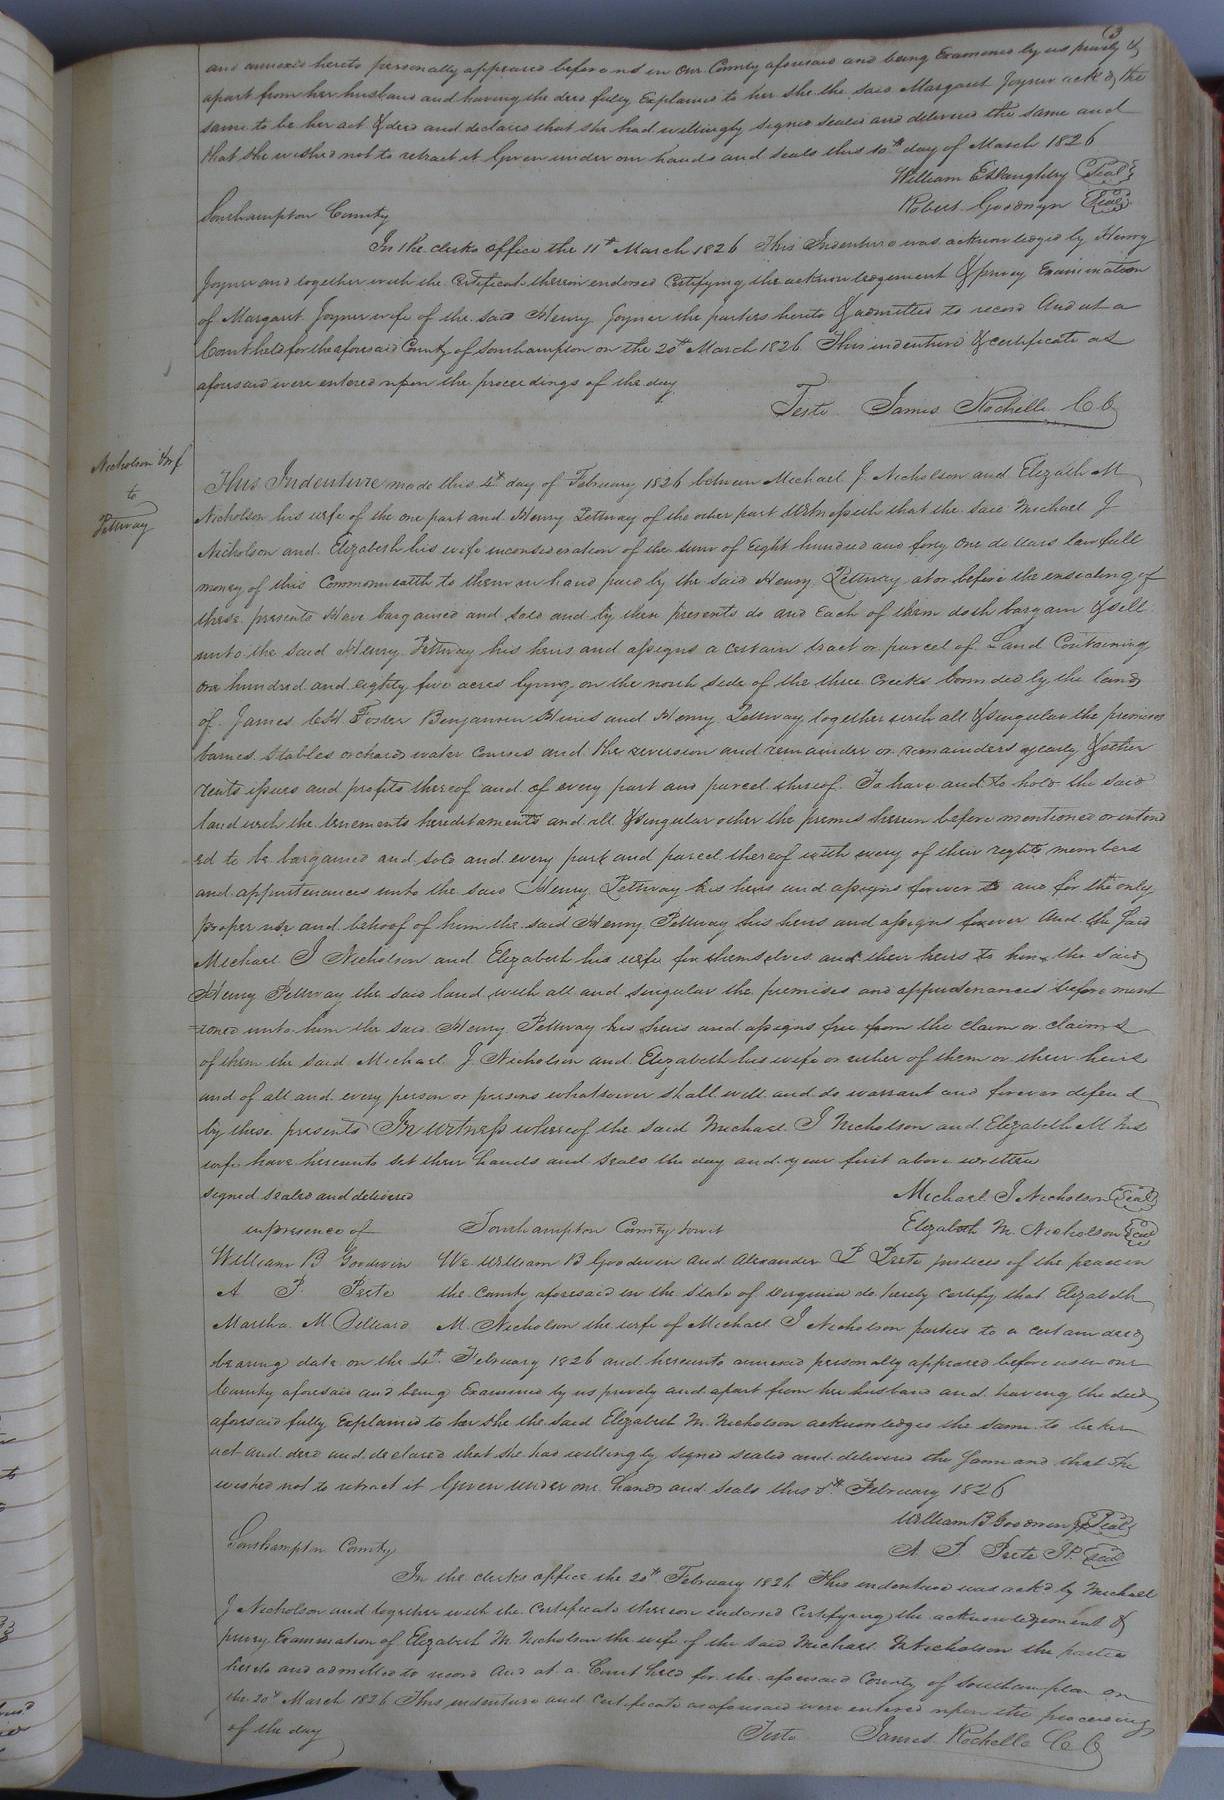 3
and annexed hereto personally appeared before us in our County aforesaid and being Examined by us privily &
apart from her husband and having the deed fully Explained to her she the said Margaret Joyner ackd the
same to be her act & deed and declared that she had willingly signed sealed and delivered the same and
that she wished not to retract it Given under our hands and seals this 10th day of March 1826
William E (Seal)
Robert Goodwyn (Seal)
Southampton County
In the clerks office the 11th March 1826 This Indenture was acknowledged by Henry
Joyner and together with the Certificate thereon endorsed Certifying the acknowledgement & privy Examination
of Margaret Joyner wife of the said Henry Joyner the parties hereto & admitted to record And at a
Court held for the aforesaid County of Southampton on the 20th March 1826 This indenture & certificate as
aforesaid were entered upon the proceedings of the day
Teste James Rochelle CC
Nicholson & wf
to
Pettway
This Indenture made this 4th day of February 1826 between Michael J Nicholson and Elizabth M
Nicholson his wife of the one part and Henry Pettway of the other part Witnesseth that the said Michael J
Nicholson and Elizabeth his wife in consideration of the sum of Eight hundred and forty one dollars lawfull
money of this Commonwealth to them in hand paid by the said Henry Pettway at or before the ensealing of
these presents Have bargained and sold and by these presents do and Each of them doth bargain & sell
unto the said Henry Pettway his heirs and assigns a certain tract or parcel of Land Containing
one hundred and eighty five acres lying on the north side of the three Creeks bounded by the lands
of James Foster Benjamin and Henry Pettway together with all & singular the premises
barnes Stables orchards water Courses and the reversion and remainder or remainders yearly & other
rents issues and profits thereof and of every part and parcel thereof. To have and to hold the said
land with the tenements hereditaments and all & singular other the premises herein before mentioned or intend
ed to be bargained and sold and every part and parcel thereof with every of their rights members
and appurtenances unto the said Henry Pettway his heirs and assigns forever to and for the only
proper use and behoof of him the said Henry Pettway his heirs and assigns forever And the said
Michael J Nicholson and Elizabeth his wife for themselves and their heirs to him the said
Henry Pettway the said land with all and singular the premises and appurtenances before ment
=ioned unto him the said Henry Pettway his heirs and assigns free from the claim or claims
of them the said Michael J Nicholson and Elizabeth his wife or either of them or their heirs
and of all and every person or persons whatsoever shall will and do warrant and forever defend
by these presents In witness whereof the said Michael J Nicholson and Elizabeth M his
wife have hereunto set their hands and seals the day and year first above written
signed sealed and delivered Michael J Nicholson (Seal)
in presence of Southampton County towit Elizabeth M Nicholson (Seal)
William B Goodwin We William B Goodwin and Alexander P Peete justices of the peace in
A P. Peete the County aforesaid in the State of Virginia do hereby certify that Elizabeth
Martha M M. Nicholson the wife of Michael J Nicholson parties to a certain deed
bearing date on the 4th February 1826 and hereunto annexed personally appeared before us in our
County aforesaid and being Examined by us privily and apart from her husband and having the deed
aforesaid fully Explained to her she the said Elizabeth M. Nicholson acknowledges the same to be her
act and deed and declared that she had willingly signed sealed and delivered the same and that she
wished not to retract it Given under our hands and seals this February 1826
William B Goodwin (Seal)
A. P. Peete JP. (Seal)
Southampton County
In the clerks office the 20th February 1826 This indenture was ackd by Michael
J Nicholson and together with the Certificate thereon endorsed Certifying the acknowledgement &
privy Examination of Elizabeth M Nicholson the wife of the said Michael Nicholson the parties
hereto and admitted to record And at a Court held for the aforesaid County of Southampton on
the 20th March 1826 This indenture and Certificate as aforesaid were entered upon the proceedings
of the day Teste James Rochelle CC